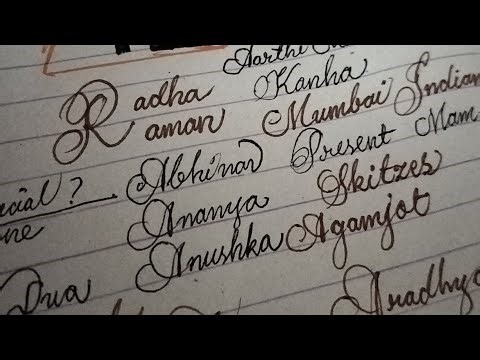 Aarthi
Radha Kanha
Raman Mumbai Indian
ecial ? Abhinav Present Mam
ne Ananya Skitzes
Dua Anushka Agamjot
Aradhya